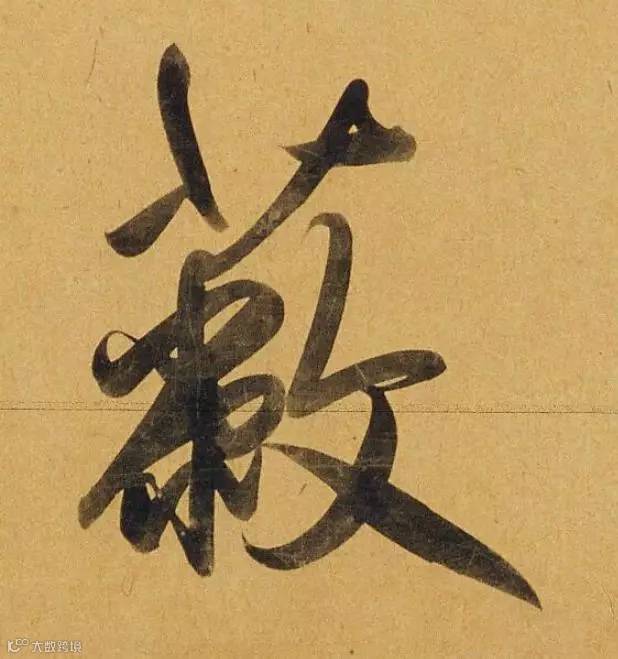 蔽
大数跨境